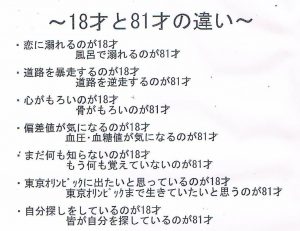 ～18才と81才の違い～
・恋に溺れるのが18才
風呂で溺れるのが81才
・道路を暴走するのが18才
道路を逆走するのが81才
・心がもろいのが18才
骨がもろいのが81才
・偏差値が気になるのが18才
血圧・血糖値が気になるのが81才
・まだ何も知らないのが18才
もう何も覚えていないのが81才
・東京オリンピックに出たいと思っているのが18才
東京オリンピックまで生きていたいと思うのが81才
・自分探しをしているのが18才
皆が自分を探しているのが81才